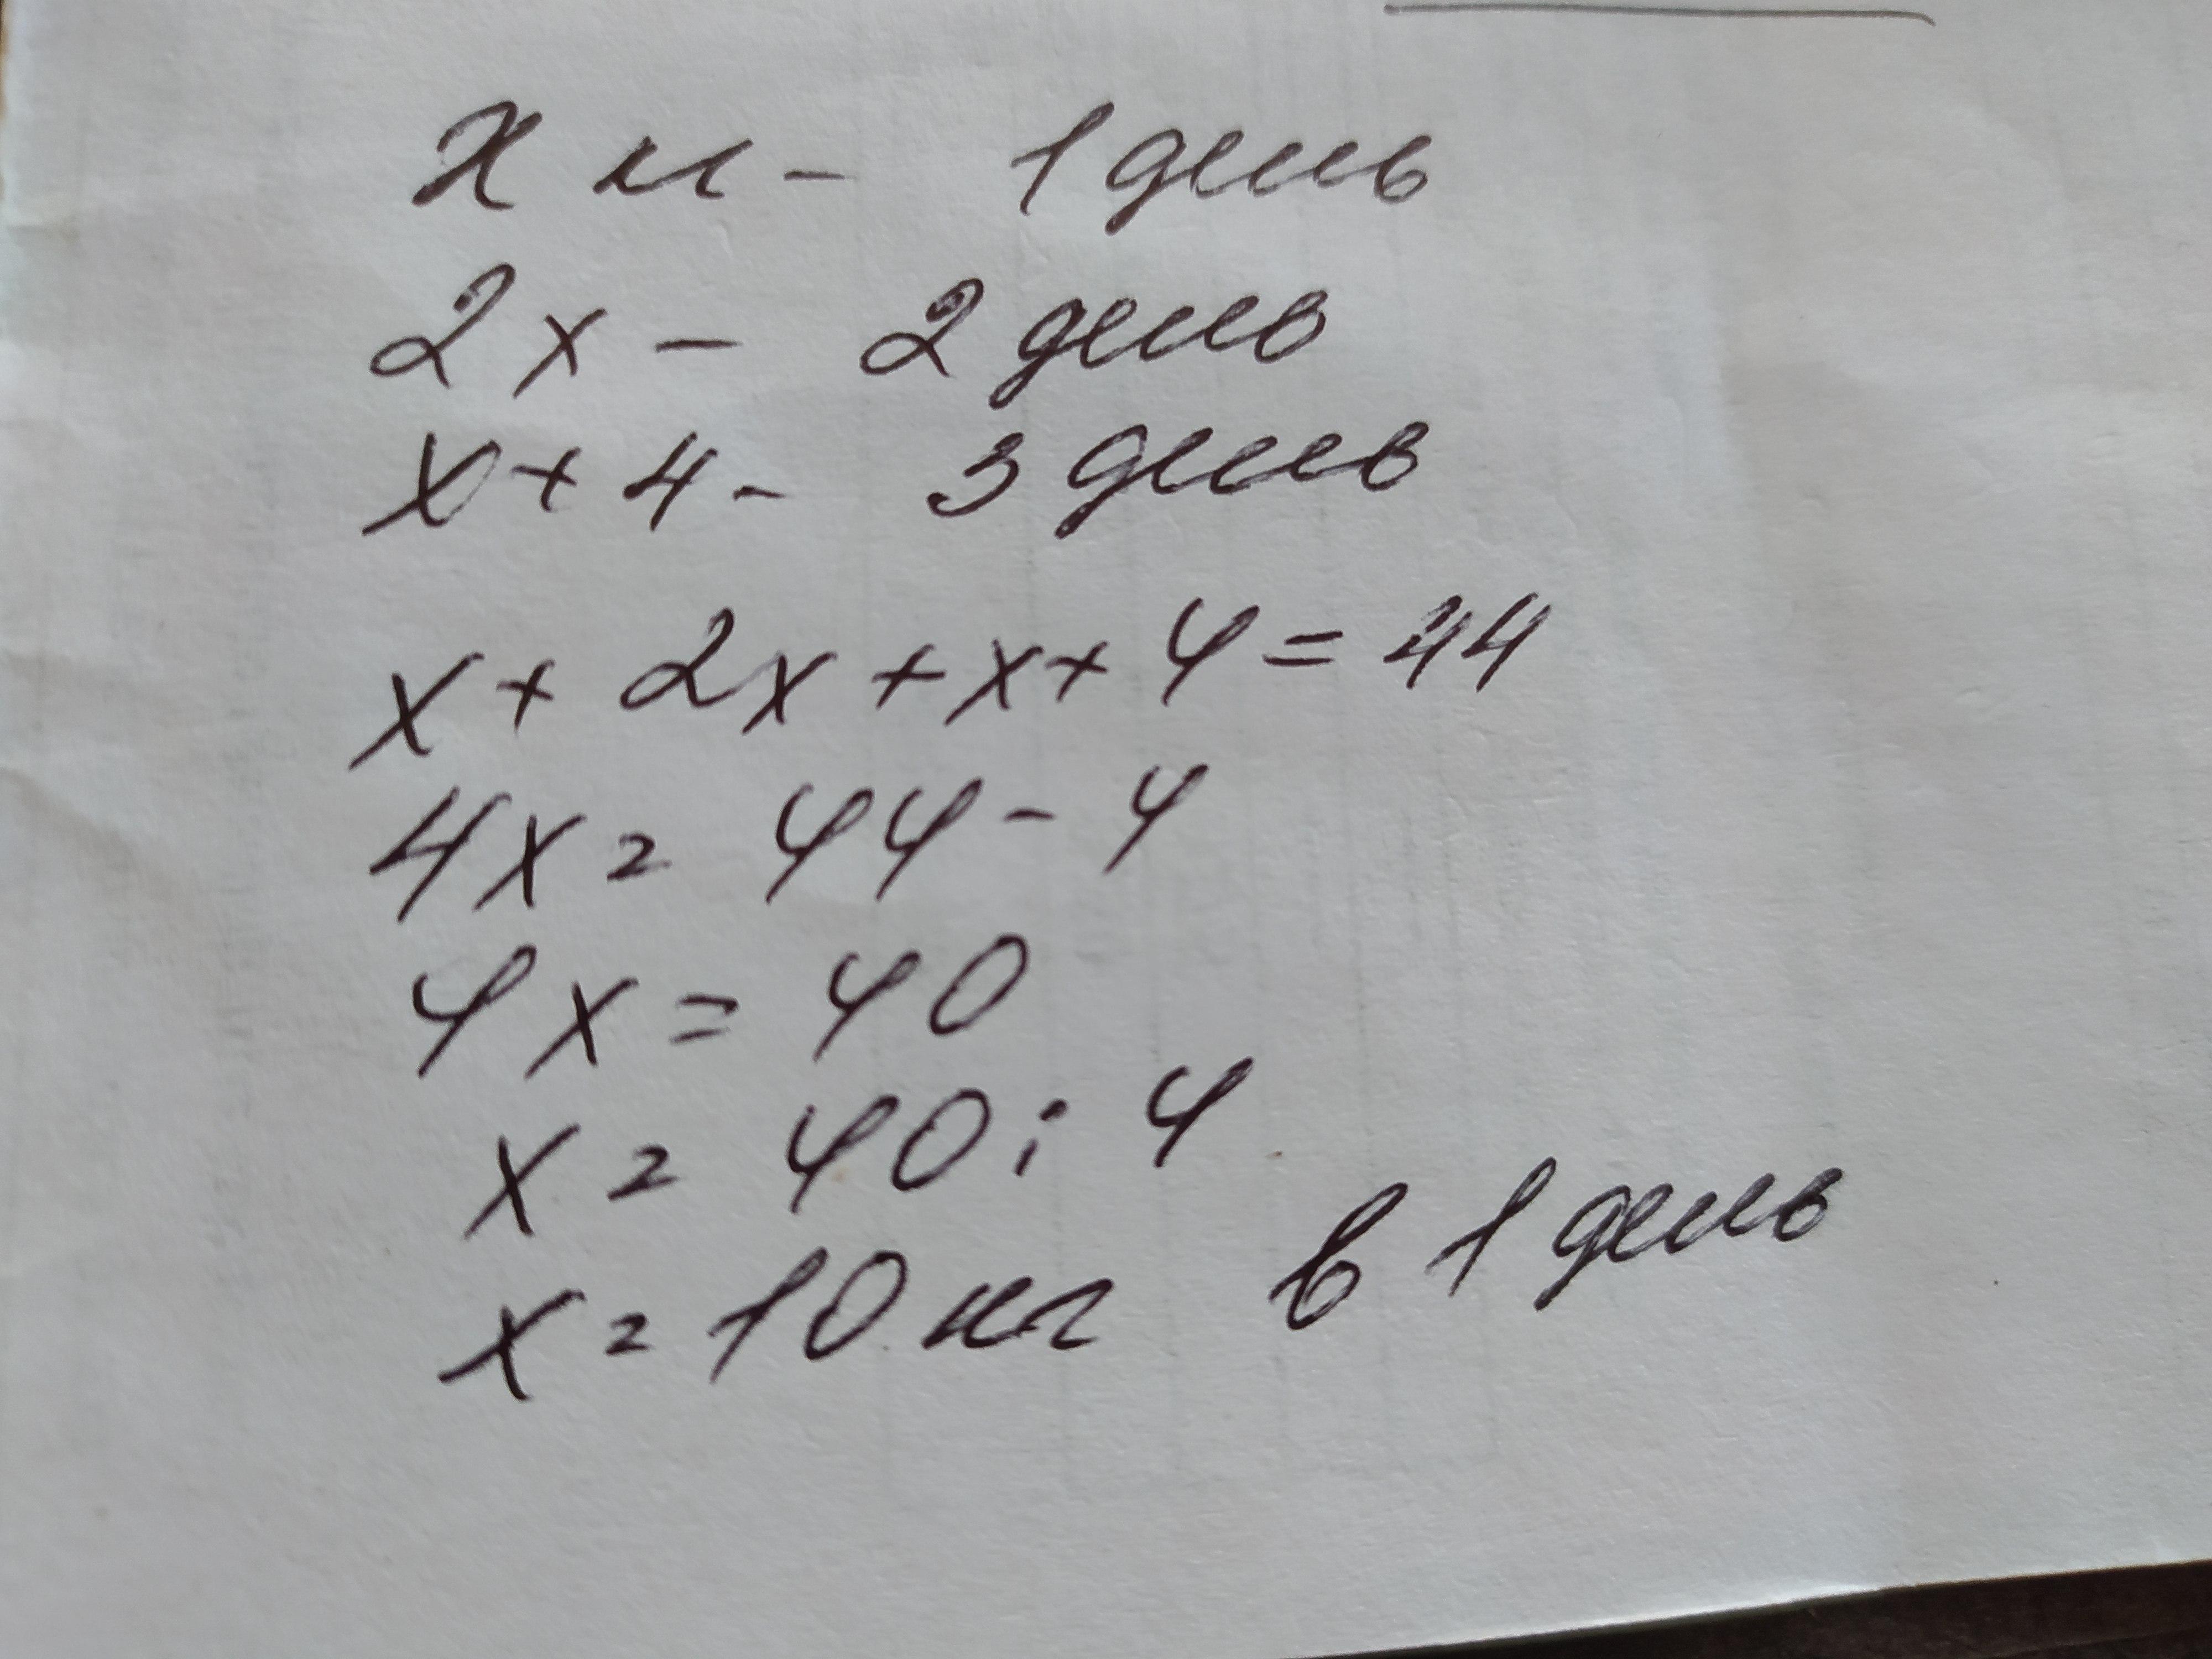 x кг - 1 день
2x - 2 день
x + 4 - 3 день
x + 2x + x + 4 = 44
4x = 44 - 4
4x = 40
x = 40 : 4
x = 10 кг в 1 день